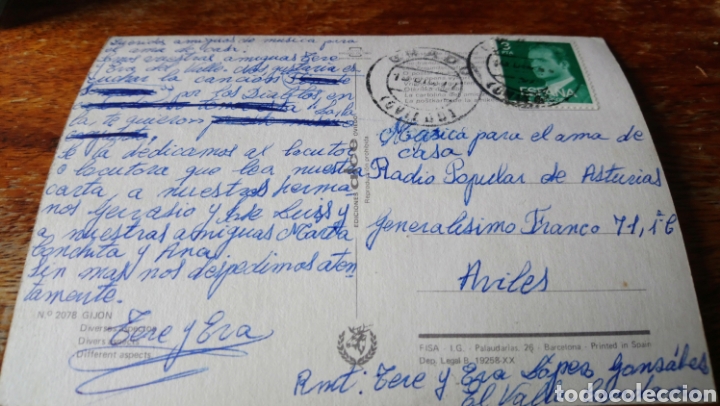 amiguas de musica para
el ama de casa.
amiguas Tere
y Eva del Valle.
la cancion
por los Diablos en
te quieren
Se la dedicamos al locutor
o locutora que lea nuestra
carta a nuestros herma
nos Gervasio y Jose Luis y
a nuestras amiguas Marta
Conchita y Ana.
Sin mas nos despedimos aten-
tamente.
Tere y Eva
N.º 2078 GIJON
Diversos aspectos
Divers aspects
Different aspects
EDICIONES alce OVIEDO
Reproducción prohibida
3
PTA
ESPAÑA
GRADO
(OVIEDO)
Musica para el ama de
casa
Radio Popular de Asturias
Generalisimo Franco 71, 1º C
Aviles
FISA - I.G. - Palaudarias, 26 - Barcelona - Printed in Spain
Dep. Legal B. 19258-XX
Rmt: Tere y Eva López Gonsáles
El Valle
todocoleccion